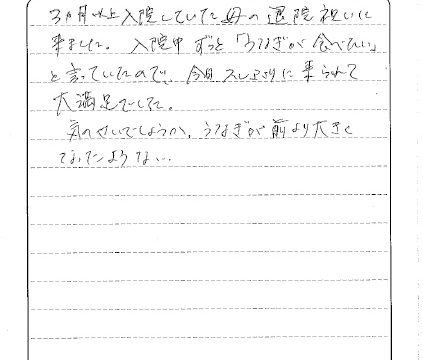 3ヵ月以上入院していた母の退院祝いに
来ました。入院中ずっと「うなぎが食べたい」
と言っていたので、今日久しぶりに来られて
大満足でした。
気のせいでしょうか、うなぎが前より大きく
なったような…